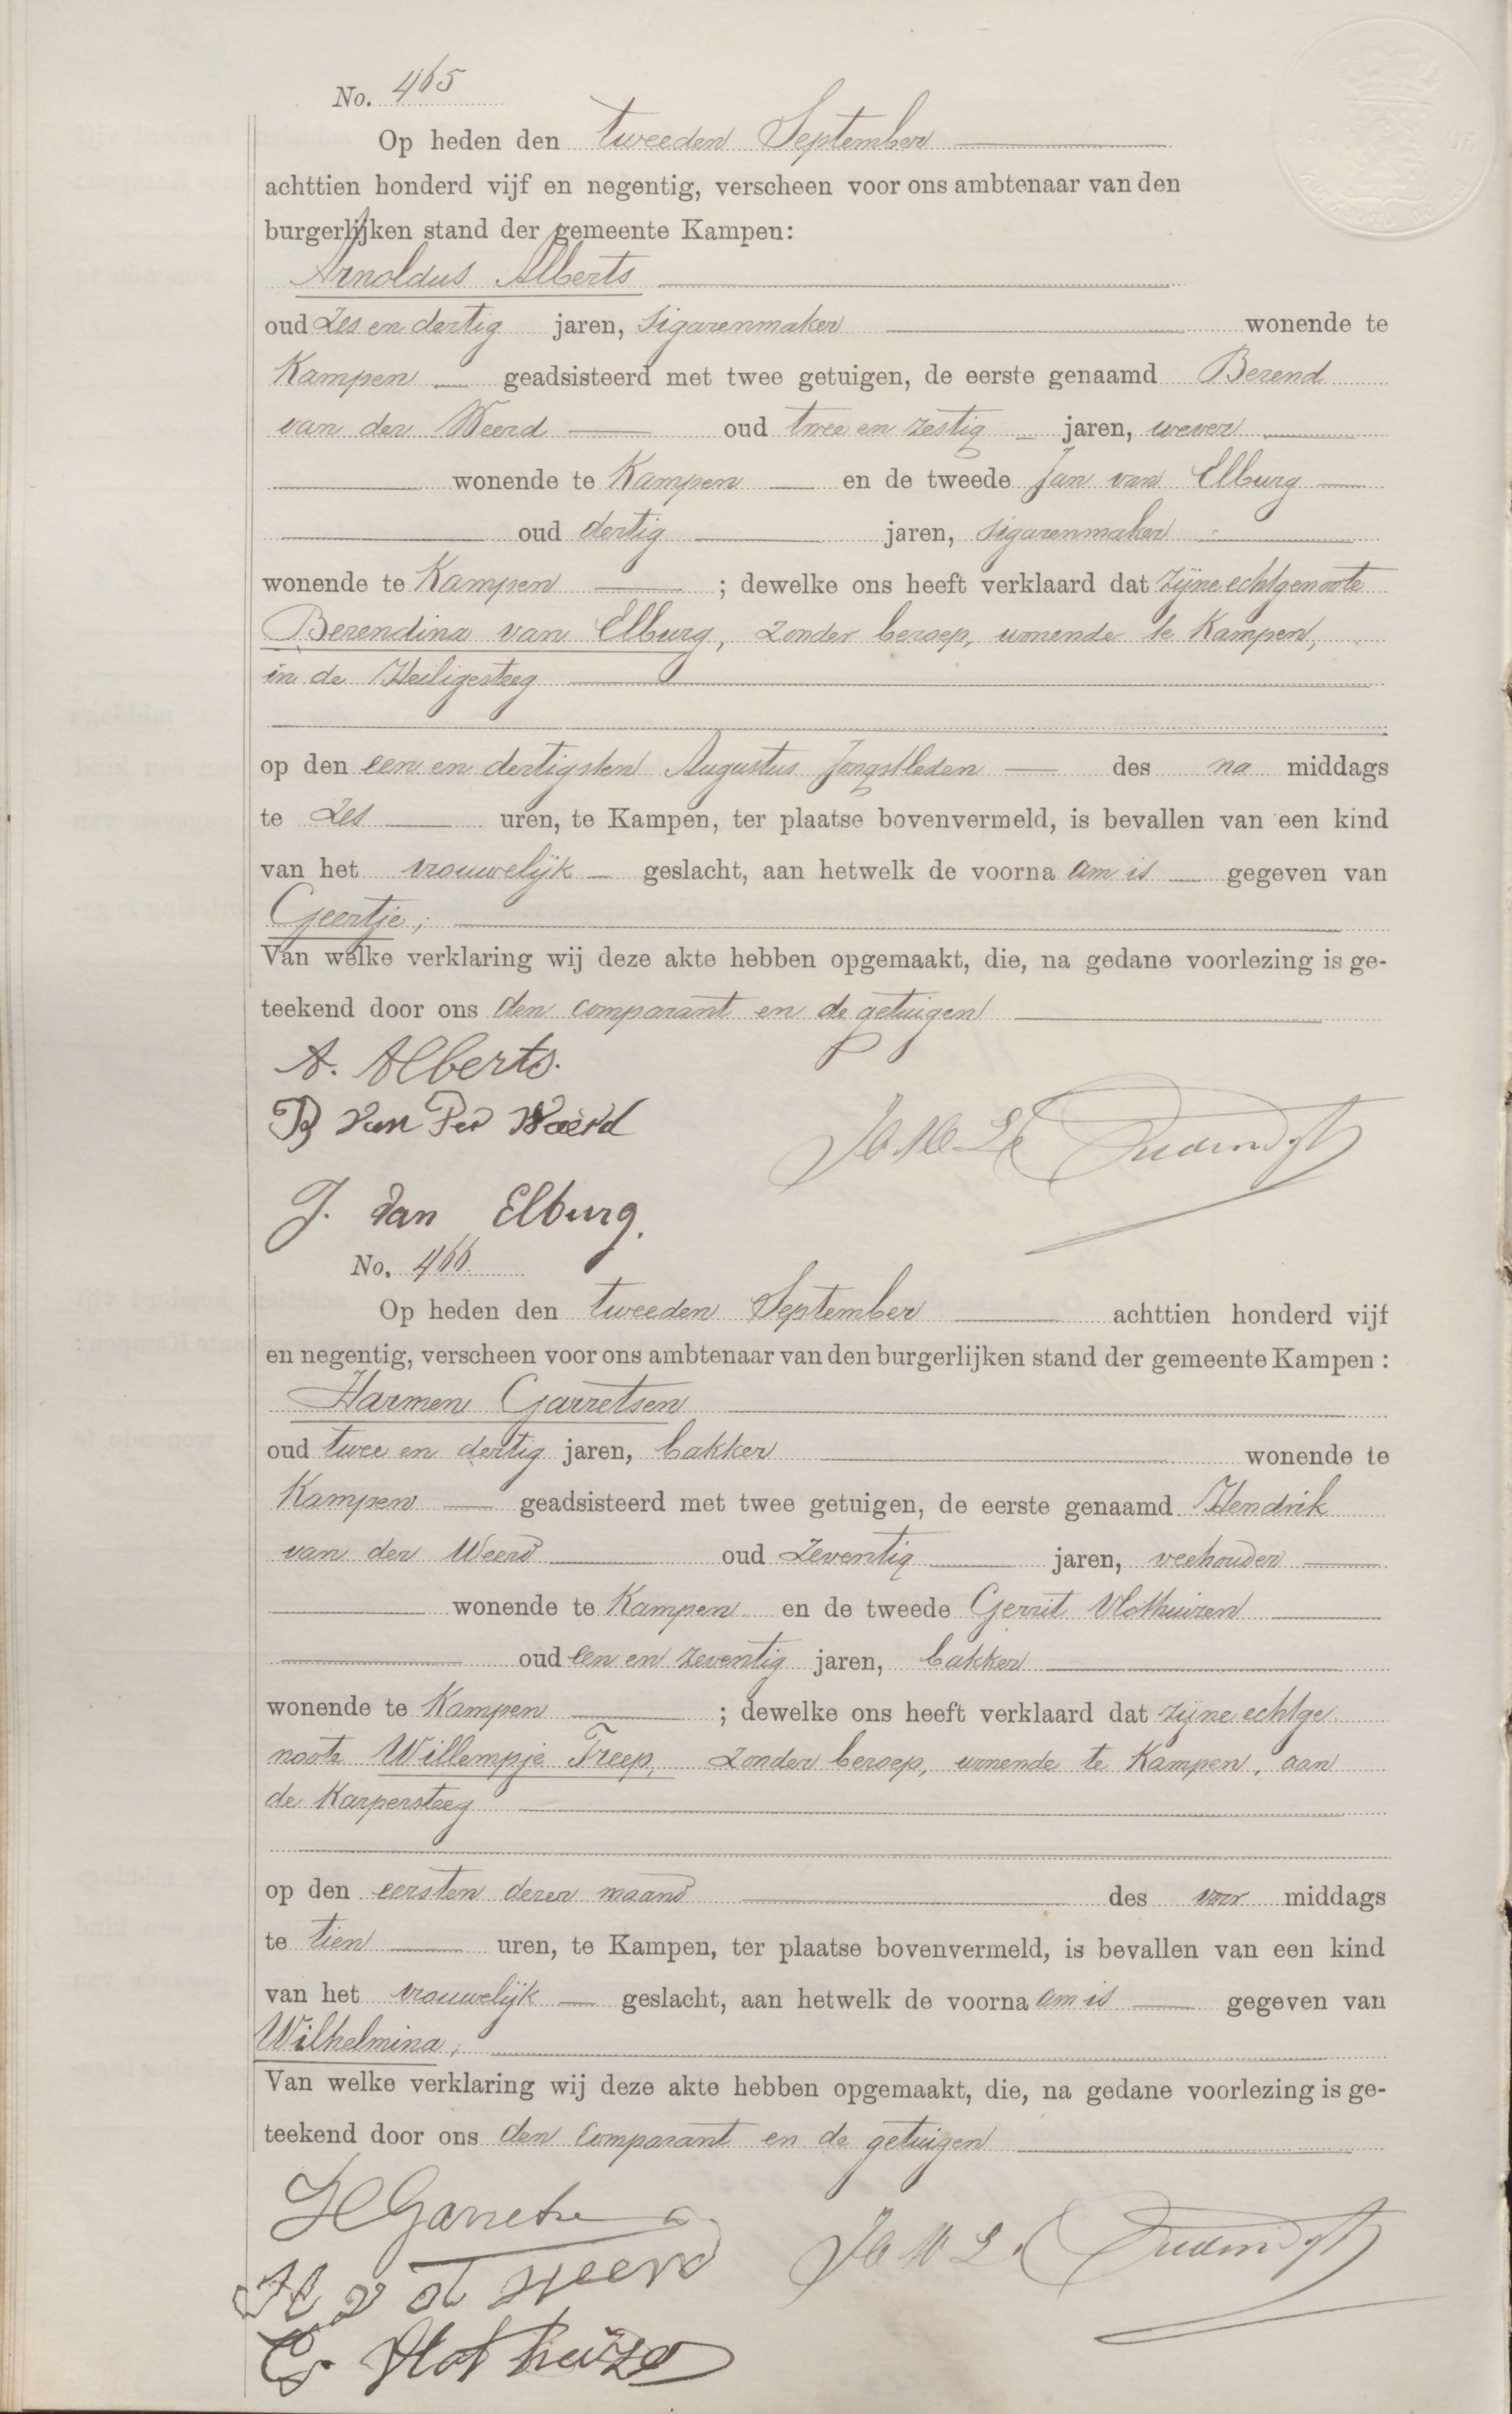 No. 465
Op heden den tweeden September
achttien honderd vijf en negentig, verscheen voor ons ambtenaar van den
burgerlijken stand der gemeente Kampen:
Arnoldus Alberts
oud zes en dertig jaren, sigarenmaker wonende te
Kampen geadsisteerd met twee getuigen, de eerste genaamd Berend
van der Weerd oud twee en zestig jaren, wever
wonende te Kampen en de tweede Jan van Elburg
oud dertig jaren, sigarenmaker
wonende te Kampen ; dewelke ons heeft verklaard dat zijne echtgenoote
Berendina van Elburg, zonder beroep, wonende te Kampen,
in de Heiligesteeg
op den een en dertigsten Augustus jongstleden des na middags
te zes uren, te Kampen, ter plaatse bovenvermeld, is bevallen van een kind
van het vrouwelijk geslacht, aan hetwelk de voorna am is gegeven van
Geertje;
Van welke verklaring wij deze akte hebben opgemaakt, die, na gedane voorlezing is ge-
teekend door ons den comparant en de getuigen
A. Alberts.
B van der Weerd
J. van Elburg.
No. 466
Op heden den tweeden September achttien honderd vijf
en negentig, verscheen voor ons ambtenaar van den burgerlijken stand der gemeente Kampen:
Harmen Garretsen
oud twee en dertig jaren, bakker wonende te
Kampen geadsisteerd met twee getuigen, de eerste genaamd Hendrik
van der Weerd oud zeventig jaren, veehouder
wonende te Kampen en de tweede Gerrit Vlothuizen
oud een en zeventig jaren, bakker
wonende te Kampen ; dewelke ons heeft verklaard dat zijne echtge
noote Willempje Treep, zonder beroep, wonende te Kampen, aan
de Karpersteeg
op den eersten dezer maand des voor middags
te tien uren, te Kampen, ter plaatse bovenvermeld, is bevallen van een kind
van het vrouwelijk geslacht, aan hetwelk de voorna am is gegeven van
Wilhelmina;
Van welke verklaring wij deze akte hebben opgemaakt, die, na gedane voorlezing is ge-
teekend door ons den comparant en de getuigen
H v d Weerd